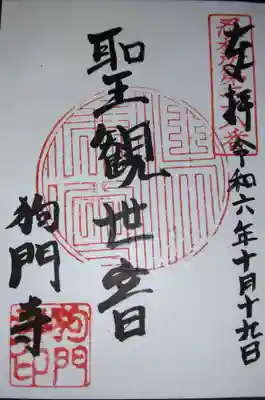 奉拝 令和六年十月十九日
聖観世音
狗門寺
狗門
寺印